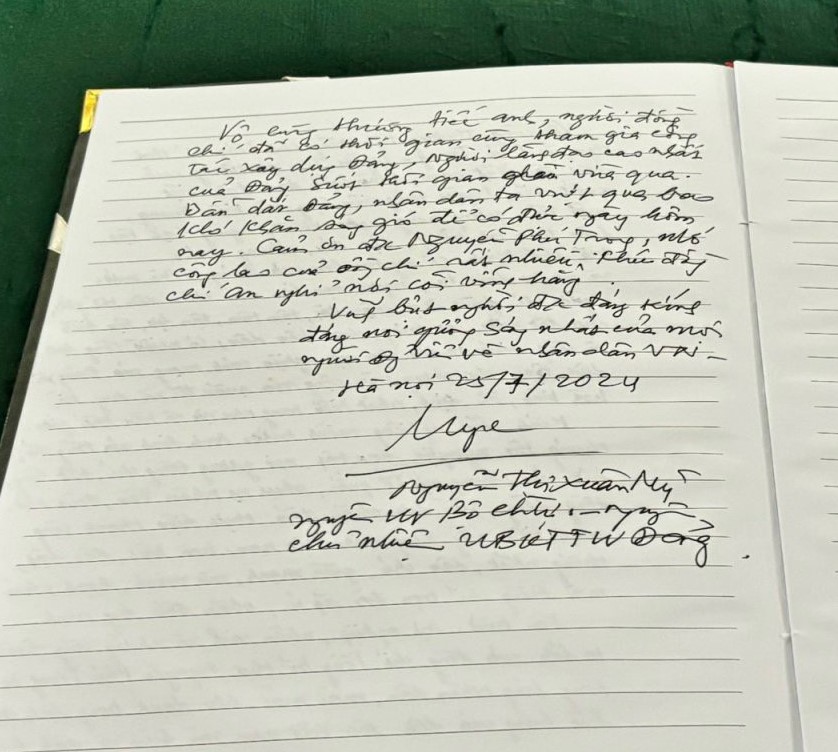 Vô cùng thương tiếc anh, người đồng
chí đã có thời gian cùng tham gia công
tác xây dựng Đảng, người lãnh đạo cao nhất
của Đảng suốt thời gian qua.
Dẫn dắt Đảng, nhân dân ta vượt qua bao
khó khăn sóng gió để có được ngày hôm
nay. Cảm ơn đ/c Nguyễn Phú Trọng, nhớ
công lao của đồng chí rất nhiều.
chí an nghỉ nơi cõi vĩnh hằng.
đáng kính
nơi sáng nhất của mỗi
người về nhân dân
Hà nội 25/7/2024
Nguyễn Thị Xuân Mỹ
nguyên UV Bộ chính nguyên
chủ nhiệm UBKTTW Đảng